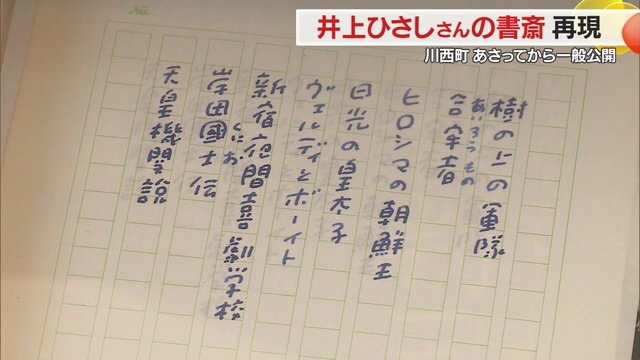 井上ひさしさんの書斎 再現
川西町 あさってから一般公開
No.
樹の上の軍隊
あいろうもの
合牢者
ヒロシマの朝鮮王
日光の皇太子
ヴェルディとボーイト
新宿夜間喜劇学校
くにお
岸田國士伝
天皇機關説